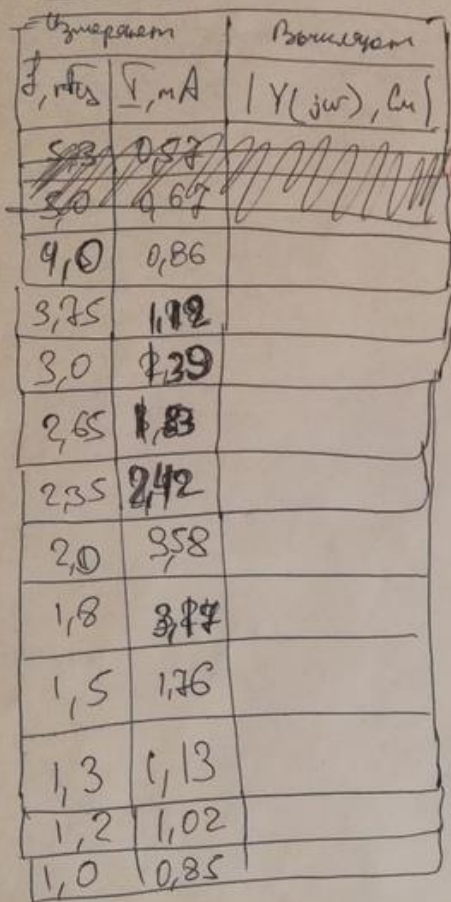 Измеряют Вычисляют
f, кГц I, мА |Y(jω), См|
5,0 0,67
4,0 0,86
3,75 1,12
3,0 1,39
2,65 1,83
2,35 2,42
2,0 3,58
1,8
1,5 1,76
1,3 1,13
1,2 1,02
1,0 0,85